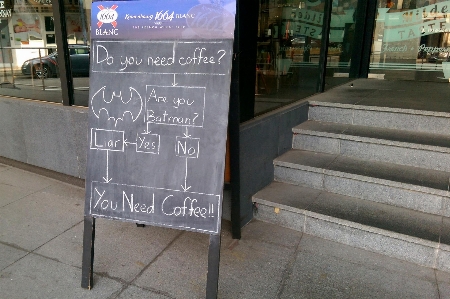 1664
BLANC
Kronenbourg 1664 BLANC
Do you need coffee?
Are you
Batman?
Liar
Yes
No
You Need Coffee!!